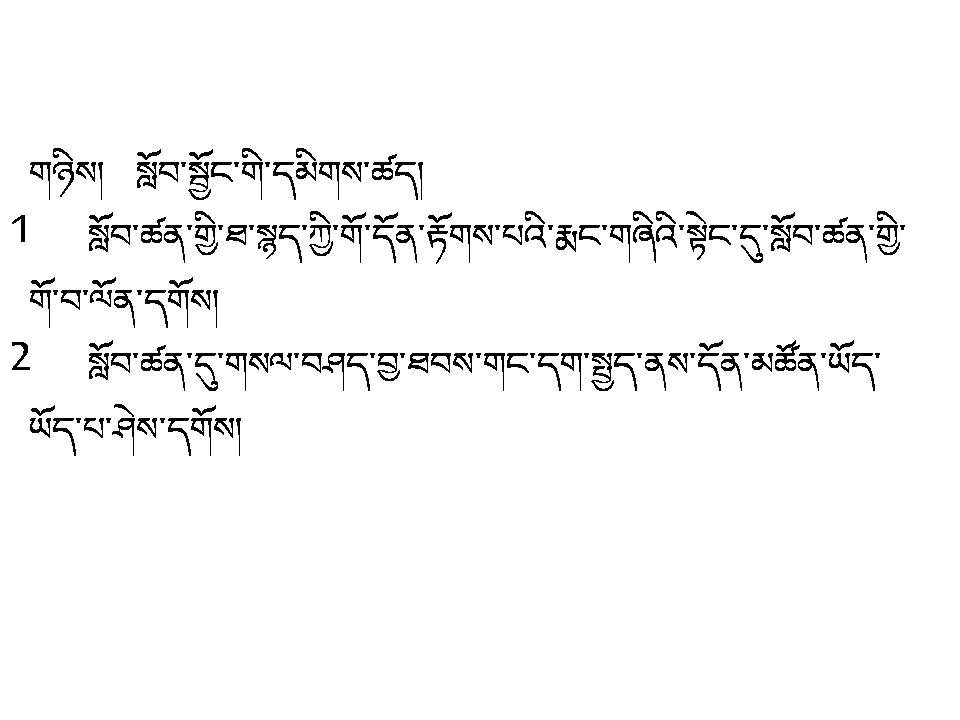 གཉིས། སློབ་སྦྱོང་གི་དམིགས་ཚད།
1 སློབ་ཚན་གྱི་ཐ་སྙད་ཀྱི་གོ་དོན་རྟོགས་པའི་རྨང་གཞིའི་སྟེང་དུ་སློབ་ཚན་གྱི་
གོ་བ་ལོན་དགོས།
2 སློབ་ཚན་དུ་གསལ་བཤད་བྱ་ཐབས་གང་དག་སྤྱད་ནས་དོན་མཚོན་ཡོད་
ཡོད་པ་ཤེས་དགོས།